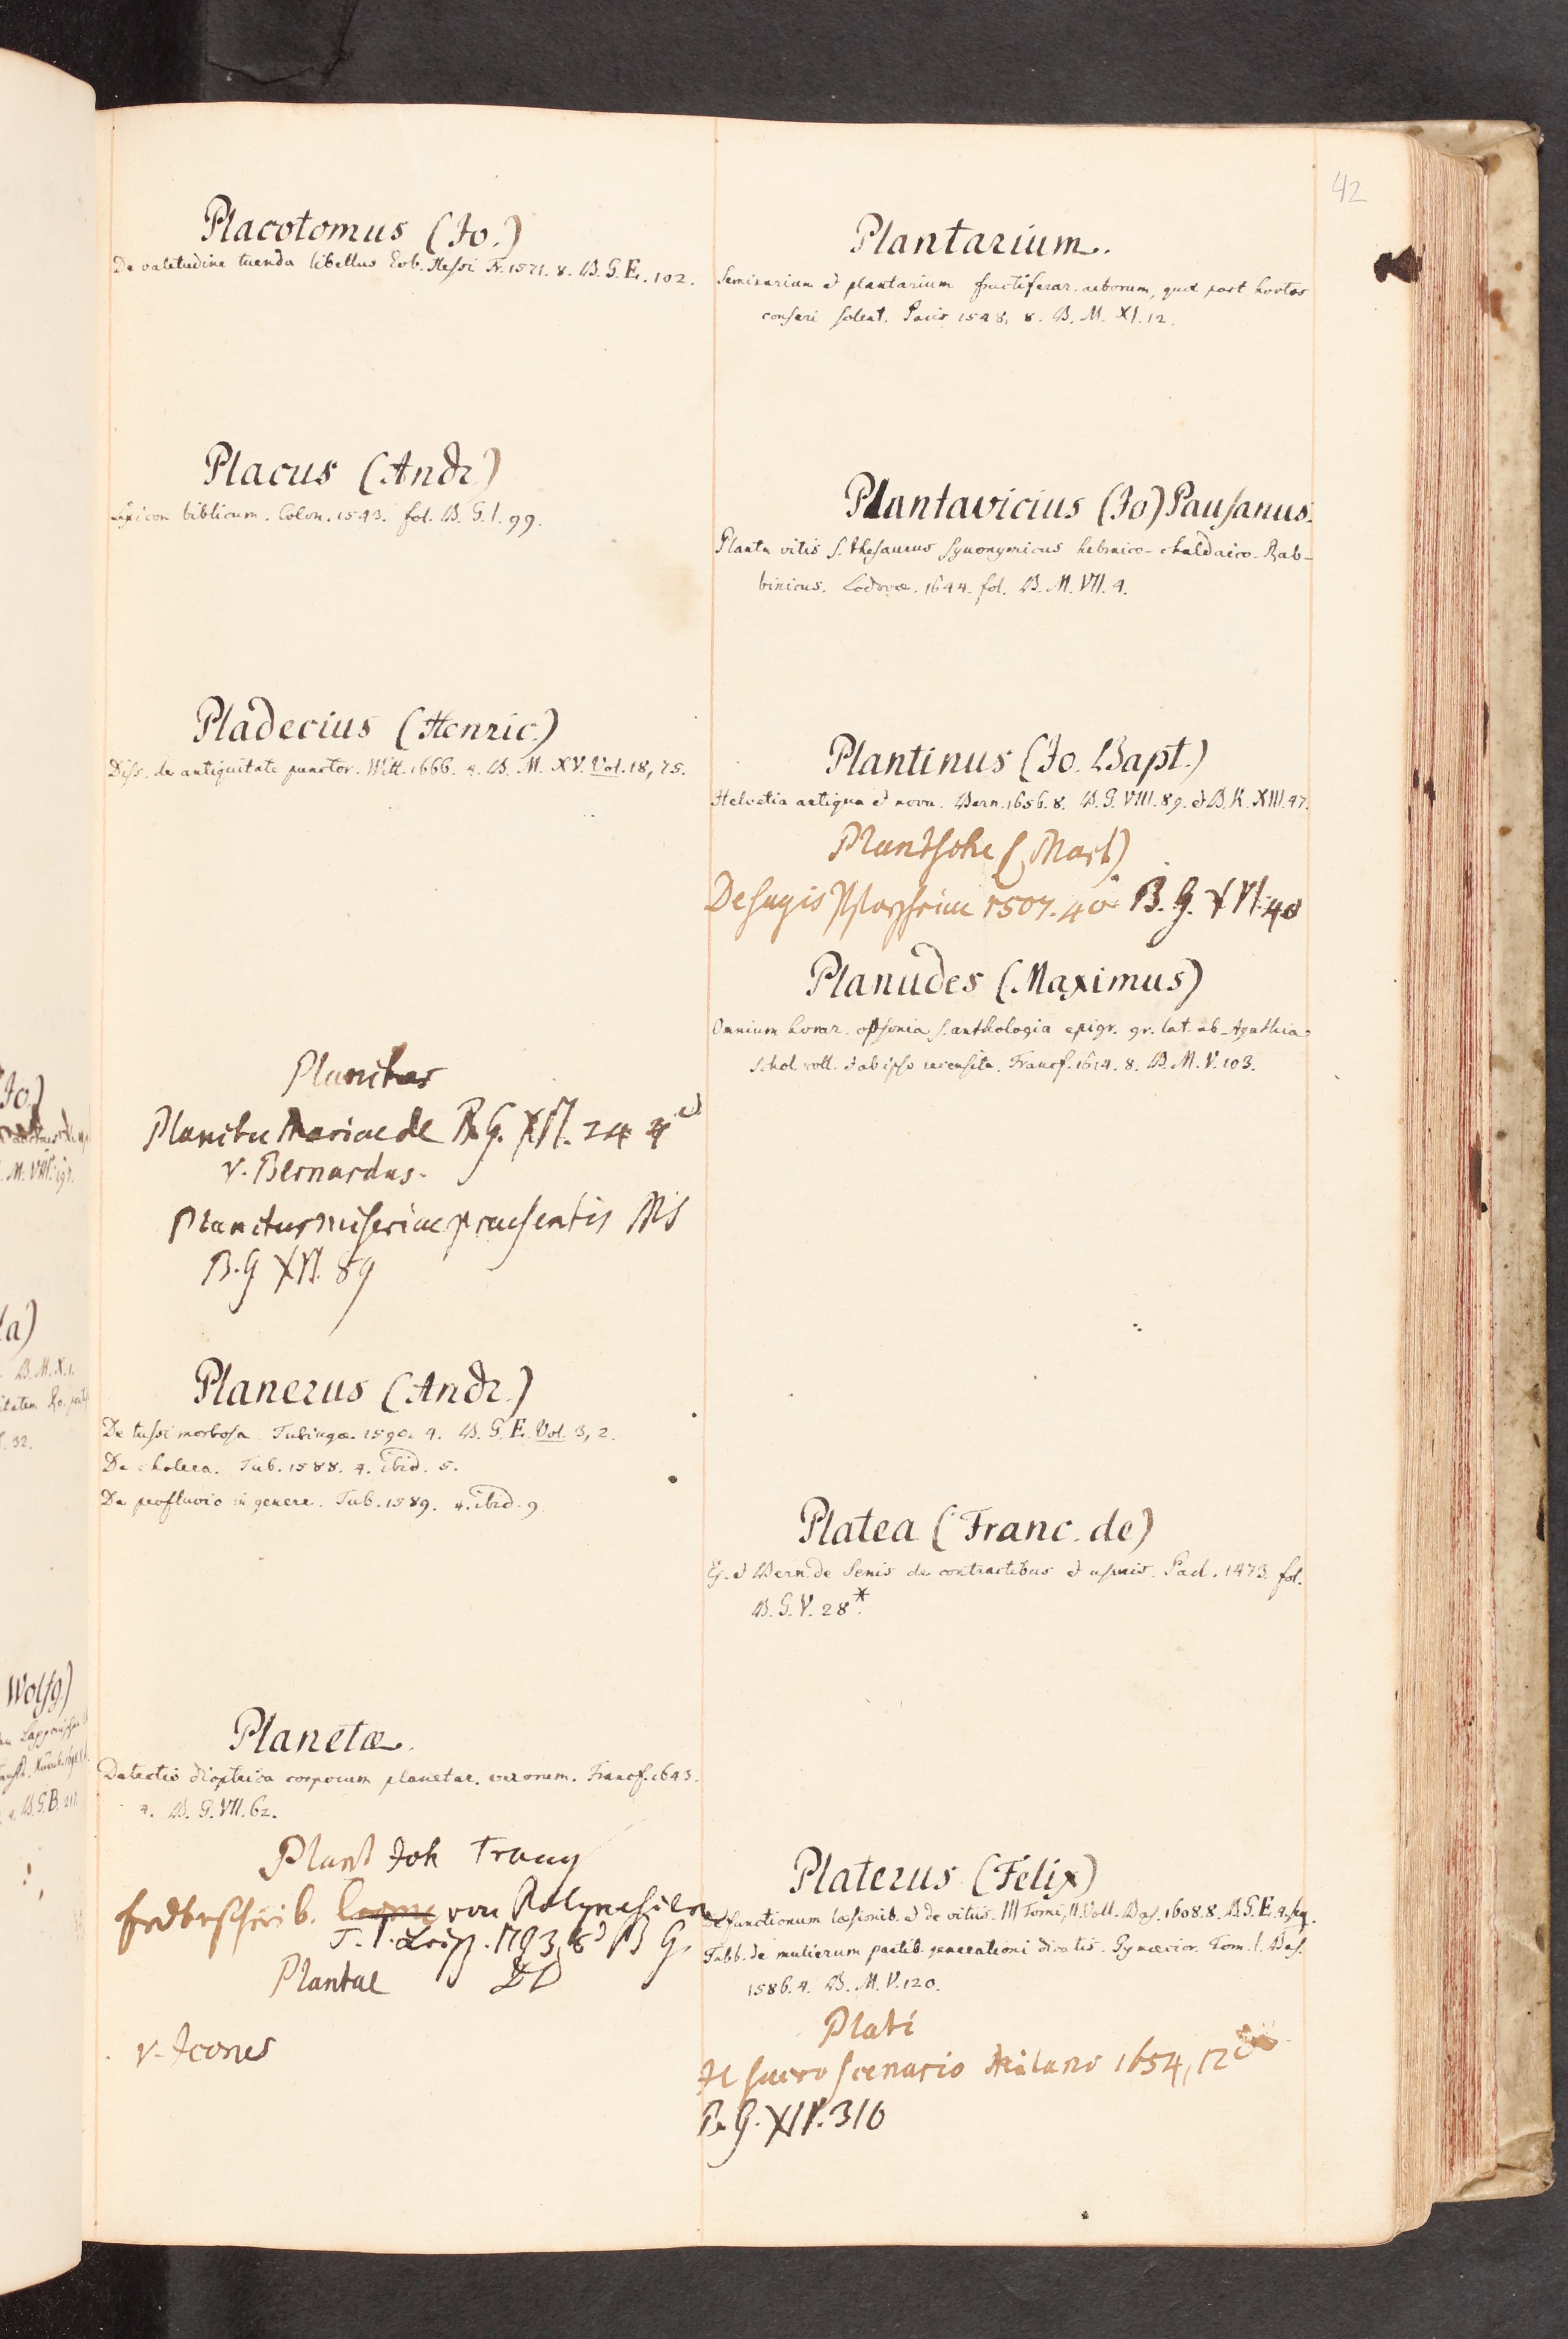 42
Placotomus (Jo.)
De valetudine tuenda libellus Eob. Hessi Fr. 1571. 8. B. G. E. 102.
Placus (Andr.)
Lexicon biblicum. Colon. 1543. fol. B. G. I. 99.
Pladecius (Henric.)
Diss. de antiquitate punctor. Witt. 1666. 4. B. M. XV. Vol. 18, 75.
Planctus
Planctu Mariae de B. G. XVI. 24
v. Bernardus.
Planctus miseriae praesentis Ms
B. G XVI. 89
Planerus (Andr.)
De tussi morbosa. Tubingæ. 1590. 4. B. G. E. Vol. 3, 2.
De cholera. Tub. 1588. 4. ibid. 5.
De profluvio in genere. Tub. 1589. 4. ibid. 9.
Planetæ.
Detectio dioptrica corporum planetar. veronem. Francf. 1643.
4. B. G. VII. 62.
Plant Joh Traug
Erdbeschreib. von Polynesien
T. I. Leipz. 1793, 8 B G.
Plantae
v. Icones
Plantarium.
Seminarium et plantarium fructiferar. arborum, quæ post hortos
conseri solent. Paris 1548. 8. B. M. XI. 12.
Plantavicius (Jo) Pausanus.
Planta vitis s. thesaurus synonymicus hebraico-chaldaico-Rab-
binicus. Lodovæ. 1644. fol. B. M. VII. 4.
Plantinus (Jo. Bapt.)
Helvetia antiqua et nova. Bern. 1656. 8. B. G. VIII. 89. et B. K. XIII. 47.
Plantsche (Mart)
De sagis 1507. 4o B. G. XVI. 40
Planudes (Maximus)
Omnium horar. opsonia s. anthologia epigr. gr. lat. ab Agathia
schol. coll. et ab ipso recensita. Francf. 1614. 8. B. M. V. 103.
Platea (Franc. de)
Ej. et Bern. de Senis de contractibus et usuris. Pad. 1473. fol.
B. G. V. 28*.
Platerus (Felix)
De functionum læsionib. et de vitiis. III Tomi, II Voll. Bas. 1608. 8. B. G. E. 4, sq.
Tabb. de mulierum partib. generationi dicatis. Gynæcior. Tom. I. Bas.
1586. 4. B. M. V. 120.
Plati
Il sacro scenario Milano 1654, 12
B. G. XIV. 316